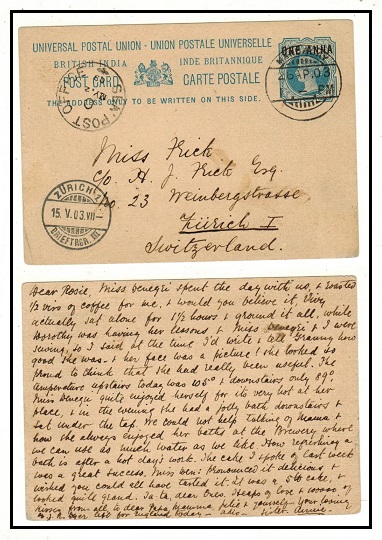 UNIVERSAL POSTAL UNION - UNION POSTALE UNIVERSELLE
BRITISH INDIA INDE BRITANNIQUE
POST CARD CARTE POSTALE
THE ADDRESS ONLY TO BE WRITTEN ON THIS SIDE.
ONE ANNA
AP. 03
PM
SEA POST OFFICE
ZÜRICH
15. V. 03. VII
BRIEFTRÄG.
Miss Frick
c/o H. J. Frick Esq.
No. 23 Weinbergstrasse
Zürich I
Switzerland.
Dear Rosie, Miss Denegri spent the day with us, & roasted
1/2 viss of coffee for me, & would you believe it, Vivy
actually sat alone for 1½ hours & ground it all, while
Dorothy was having her lessons & Miss Denegri & I were
sewing, so I said at the time I'd write & tell Granny how
good she was - & her face was a picture! She looked so
proud to think that she had really been useful. The
temperature upstairs today was 105° & downstairs only 89°.
Miss Denegri quite enjoyed herself for its very hot at her
place, & in the evening she had a jolly bath downstairs &
sat under the tap. We could not help talking of Mama &
how she always enjoyed her baths at the Brewery where
we can use as much water as we like. How refreshing a
bath is after a hot day's work. The cake I spoke of last week
was a great success, Miss Den: pronounced it delicious &
wished you could all have tasted it. It was a 5lb cake, &
looked quite grand. Ta-ta, dear Ones. Heaps of love &
kisses from all, to dear Papa, Mamma, & yourself. Your loving
for England today - Sister Annie.